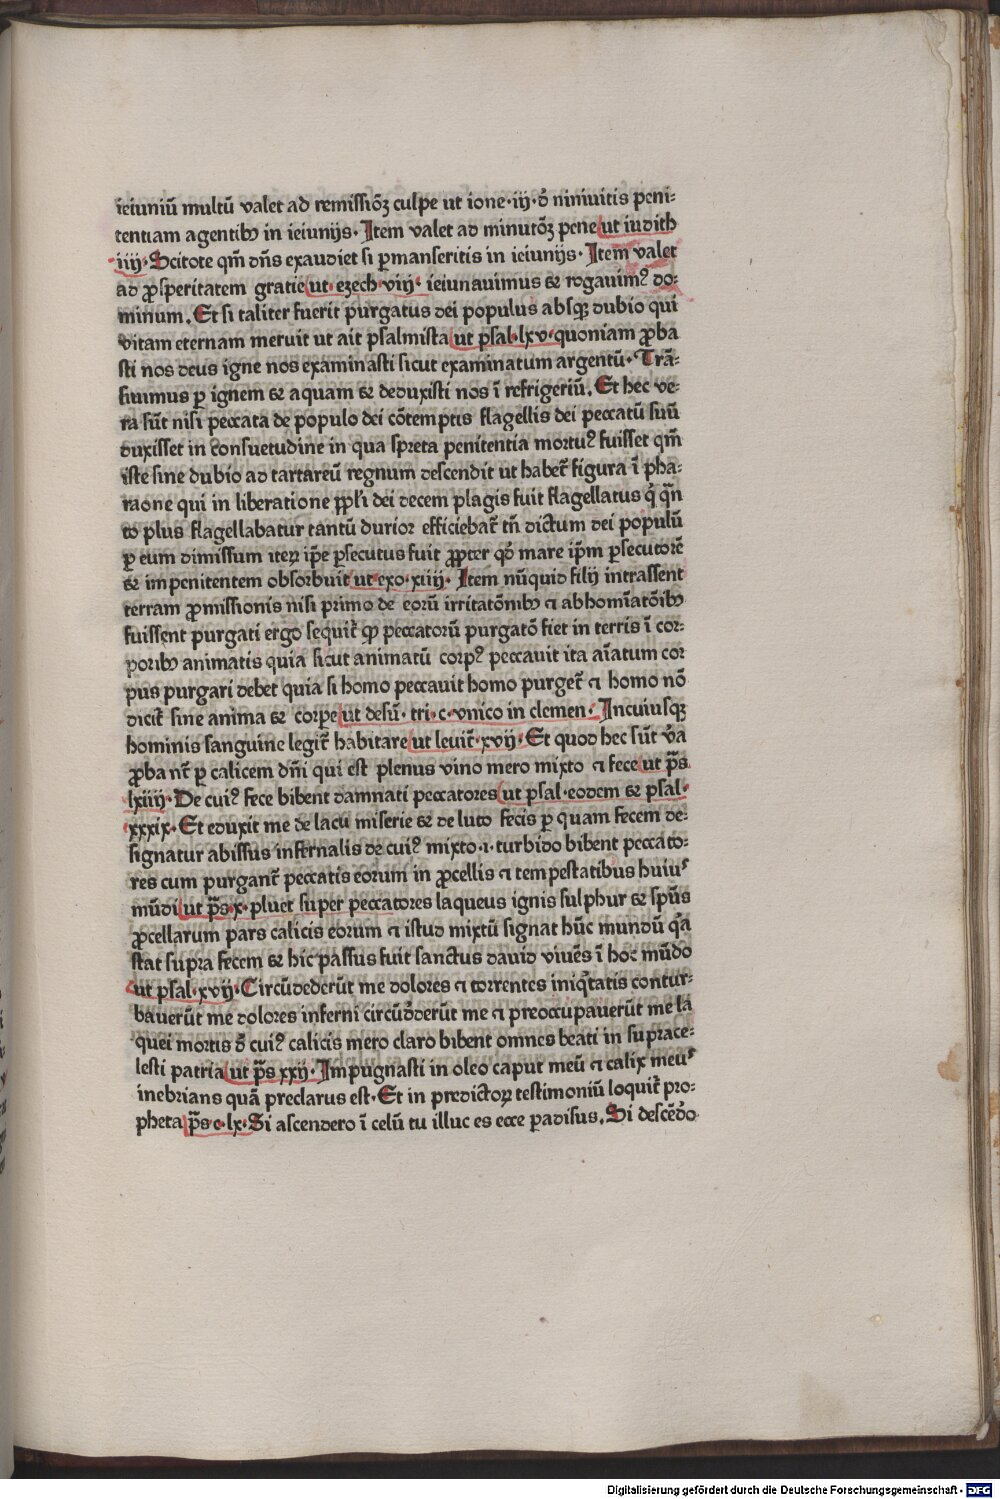 ieiuniū multū valet ad remissiōꝫ culpe ut ione·iij·ꝺ̾ niniuitis peni⸗
tentiam agentibꝰ in ieiunijs· Item valet ad minutōꝫ pene ut iudith
iiij· Scitote qm̄ dn̄s exaudiet si ꝑmanseritis in ieiunijs· Item valet
ad ꝓsperitatem gratie ut· ezech·viij· ieiunauimus ⁊ rogauimꝰ do⸗
minum. Et si taliter fuerit purgatus dei populus absqꝫ dubio qui
vitam eternam meruit ut ait psalmista ut psal·lxv·quoniam ꝓba
sti nos deus igne nos examinasti sicut examinatum argentū· Trā⸗
siuimus ꝑ ignem ⁊ aquam ⁊ deduxisti nos ī refrigeriū. Et hec ve⸗
ra sūt nisi peccata de populo dei cōtemptis flagellis dei peccatū suū
duxisset in consuetudine in qua spreta penitentia mortuꝰ fuisset qm̄
iste sine dubio ad tartareū regnum descendit ut habet̄ figura ī pha⸗
raone qui in liberatione ppl'i dei decem plagis fuit flagellatus q̾ qn̄
to plus flagellabatur tantū durior efficiebat̄ tn̄ dictum dei populū
ꝑ eum dimissum iteꝝ ip̄e ꝑsecutus fuit ꝓpter qd̾ mare ip̄m ꝑsecutorē
⁊ impenitentem obsorbuit ut exo·xiiij· Item nūquid filij intrassent
terram ꝓmissionis nisi primo de eorū irritatōnibꝰ ⁊ abhomīatōibꝰ
fuissent purgati ergo sequit̄ ꝙ peccatorū purgatō fiet in terris ī cor⸗
poribꝰ animatis quia sicut animatū corpꝰ peccauit ita aīatum cor
pus purgari debet quia si homo peccauit homo purget̄ ⁊ homo nō
dicit̄ sine anima ⁊ corpe ut desū· tri·c·vnico in clemen· Incuiusqꝫ
hominis sanguine legit̄ habitare ut leuit̄·xvij· Et quod hec sūt v̾a
ꝓba nt̄ ꝑ calicem dn̄i qui est plenus vino mero mixto ⁊ fece ut ps̄
lxiiij· De cuiꝰ fece bibent damnati peccatores ut psal·eodem ⁊ psal·
xxxix· Et eduxit me de lacu miserie ⁊ de luto fecis ꝑ quam fecem de⸗
signatur abissus infernalis de cuiꝰ mixto·i·turbido bibent peccato⸗
res cum purgant̄ peccatis eorum in ꝓcellis ⁊ tempestatibus huiuꝰ
mūdi ut ps̄·x·pluet super peccatores laqueus ignis sulphur ⁊ spūs
ꝓcellarum pars calicis eorum ⁊ istud mixtū signat hūc mundū q̾a
stat supra fecem ⁊ hic passus fuit sanctus dauid viuēs ī hoc mūdo
ut psal·xvij·Circūdederūt me dolores ⁊ torrentes iniq̾tatis contur⸗
bauerūt me dolores inferni circūd̾derūt me ⁊ preoccupauerūt me la
quei mortis ꝺ̾ cuiꝰ calicis mero claro bibent omnes beati in suprace⸗
lesti patria ut ps̄ xxij· Impugnasti in oleo caput meū ⁊ calix meuꝰ
inebrians quā preclarus est· Et in predictoꝝ testimoniū loquit̄ pro⸗
pheta ps̄·c·lx·Si ascendero ī celū tu illuc es ecce padisus. Si descēd̾o
Digitalisierung gefördert durch die Deutsche Forschungsgemeinschaft - DFG